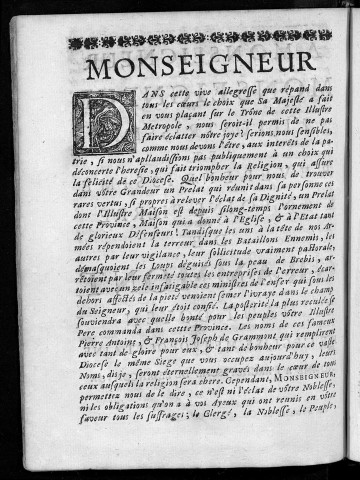 MONSEIGNEUR
DANS cette vive allegresse que répand dans
tous les cœurs le choix que Sa Majesté a fait
en vous plaçant sur le Trône de cette Illustre
Metropole, nous seroit-il permis de ne pas
faire éclatter nôtre joye! serions nous sensibles,
comme nous devons l'être, aux interêts de la pa-
trie, si nous n'applaudissions pas publiquement à un choix qui
déconcerte l'heresie, qui fait triompher la Religion, qui assure
la félicité de ce Diocese. Quel bonheur pour nous, de trouver
dans vôtre Grandeur un Prelat qui réunit dans sa personne ces
rares vertus, si propres à relever l'éclat de sa Dignité, un Prelat
dont l'Illustre Maison est depuis si long-temps l'ornement de
cette Province, Maison qui a donné à l'Eglise, & à l'Etat tant
de glorieux Défenseurs! Tandisque les uns à la tête de nos Ar-
mées répendoient la terreur dans les Bataillons Ennemis, les
autres par leur vigilance, leur sollicitude vraiment pastorale,
démasquoient les Loups déguisés sous la peau de Brebis, ar-
rêtoient par leur fermeté toutes les entreprises de l'erreur, écar-
toient avec un zele infatigable ces ministres de l'enfer qui sous les
dehors affectés de la pieté venoient semer l'ivraye dans le champ
du Seigneur, qui leur étoit confié. La posterité la plus reculée se
souviendra avec quelle bonté pour les peuples vôtre Illustre
Pere commanda dans cette Province. Les noms de ces fameux
Pierre Antoine, & François Joseph de Grammont qui remplirent
avec tant de gloire pour eux, & tant de bonheur pour ce vaste
Diocese le même Siege que vous occupez aujourd'huy, leurs
Noms, dis-je, seront éternellement gravés dans le cœur de tous
ceux ausquels la religion sera chere. Cependant, MONSEIGNEUR,
permettez nous de le dire, ce n'est ni l'éclat de vôtre Noblesse,
ni les obligations qu'on a à vos Ayeux qui ont reunis en vôtre
faveur tous les suffrages; le Clergé, la Noblesse, le Peuple,